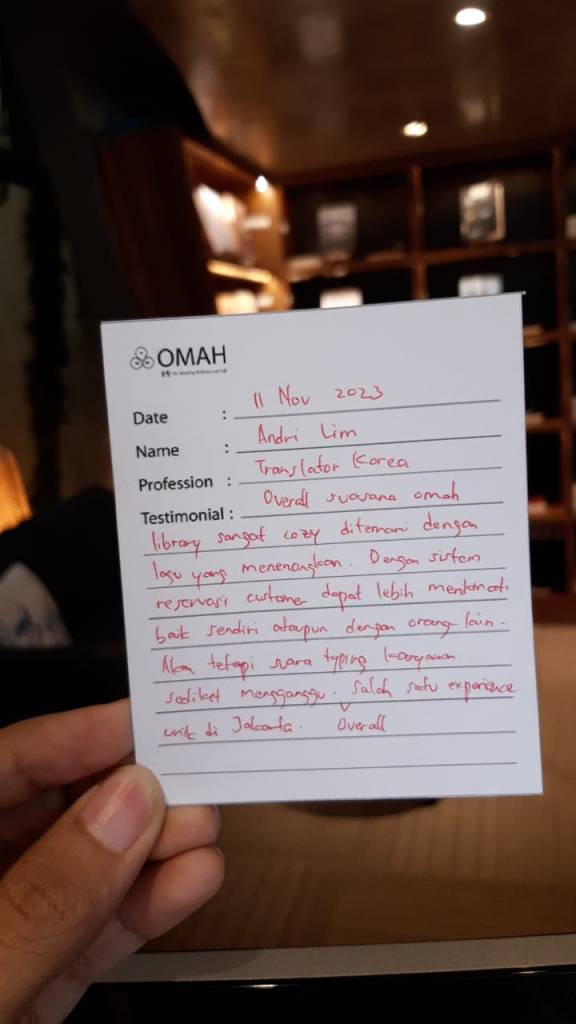 OMAH
Date : 11 Nov 2023
Name : Andri Lim
Profession : Translator Korea
Testimonial : Overall suasana omah
library sangat cozy ditemani dengan
lagu yang menenangkan. Dengan sistem
reservasi customer dapat lebih menikmati
baik sendiri ataupun dengan orang lain.
Akan tetapi suara typing karyawan
sedikit mengganggu. Salah satu experience
unik di Jakarta. Overall